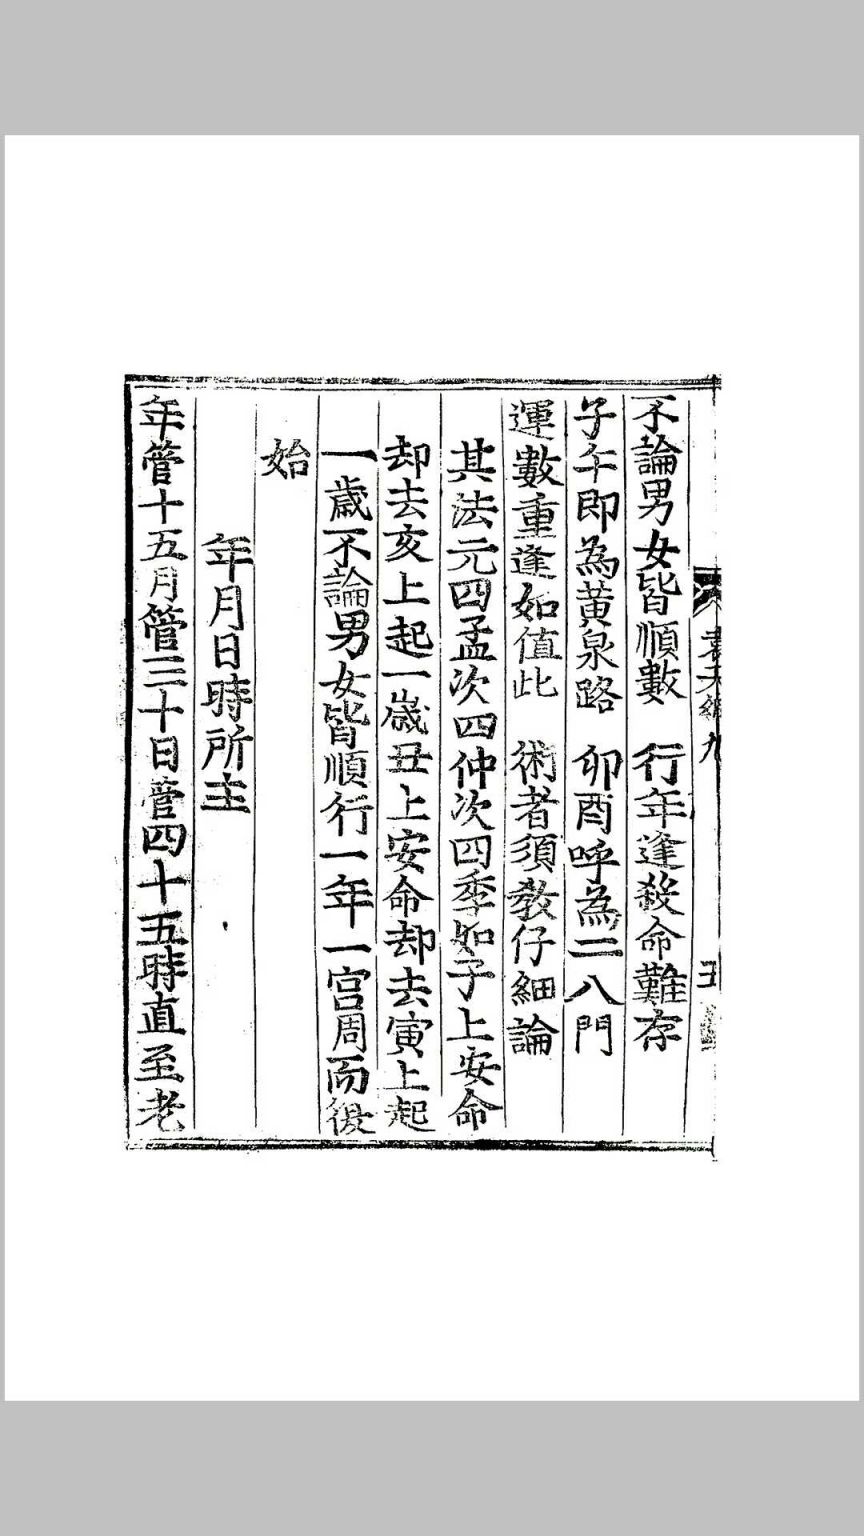 袁天綱 九
五
不論男女皆順數 行年逢殺命難存
子午即為黃泉路 卯酉呼為二八門
運數重逢如值此 術者須教仔細論
其法元四孟次四仲次四季如子上安命
却去亥上起一歲丑上安命却去寅上起
一歲不論男女皆順行一年一宮周而復
始
年月日時所主
年管十五月管三十日管四十五時直至老